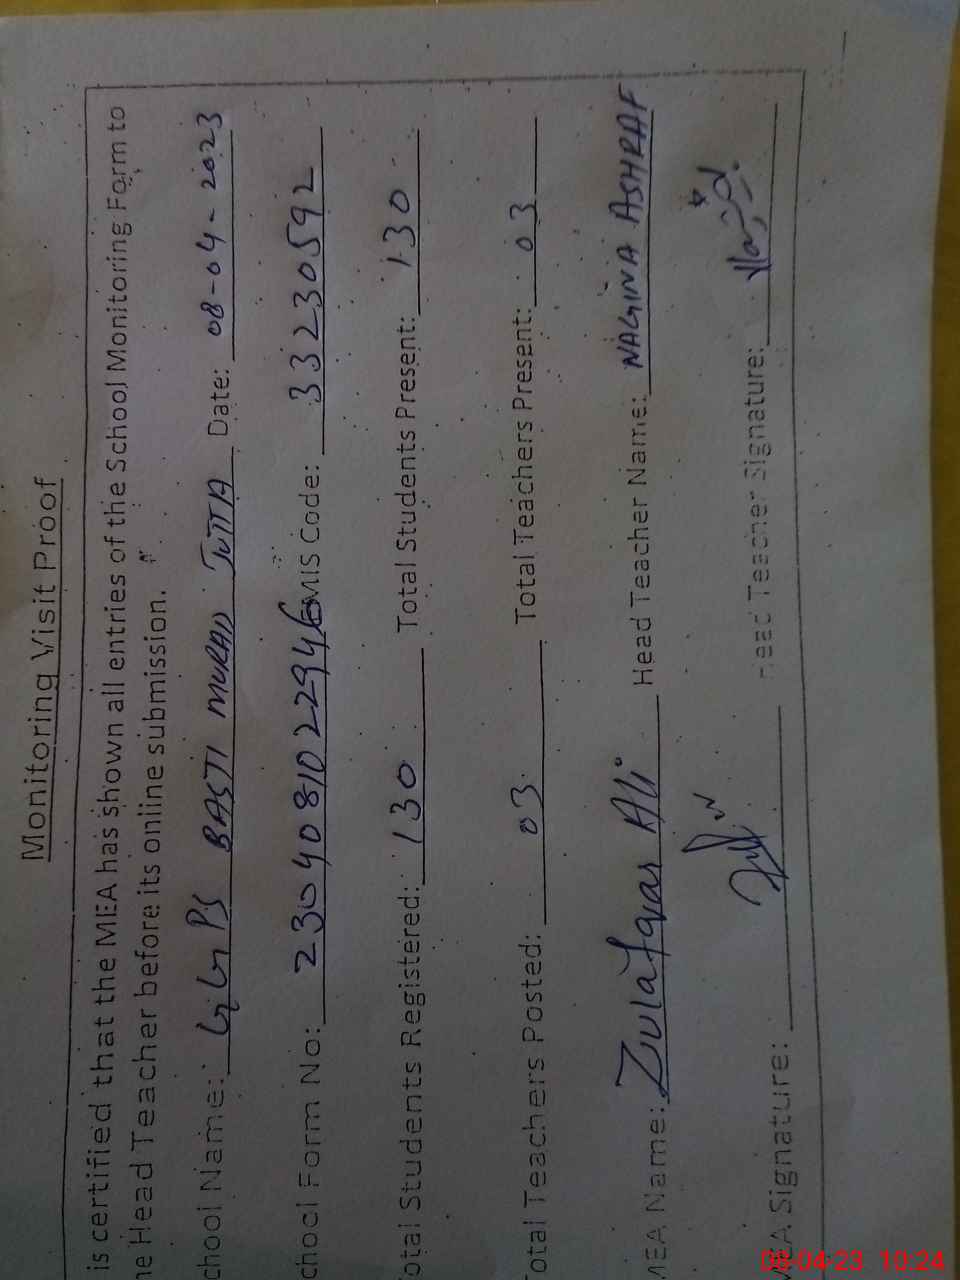 Monitoring Visit Proof
is certified that the MEA has shown all entries of the School Monitoring Form to
he Head Teacher before its online submission.
chool Name: GGPS BASTI MURAD JUTTA Date: 08-04-2023
chool Form No: 2304081022946 EMIS Code: 33230592
otal Students Registered: 130 Total Students Present: 130
otal Teachers Posted: 03 Total Teachers Present: 03
MEA Name: Zulafqar Ali Head Teacher Name: NAGINA ASHRAF
MEA Signature: Head Teacher Signature:
08-04-23 10:24